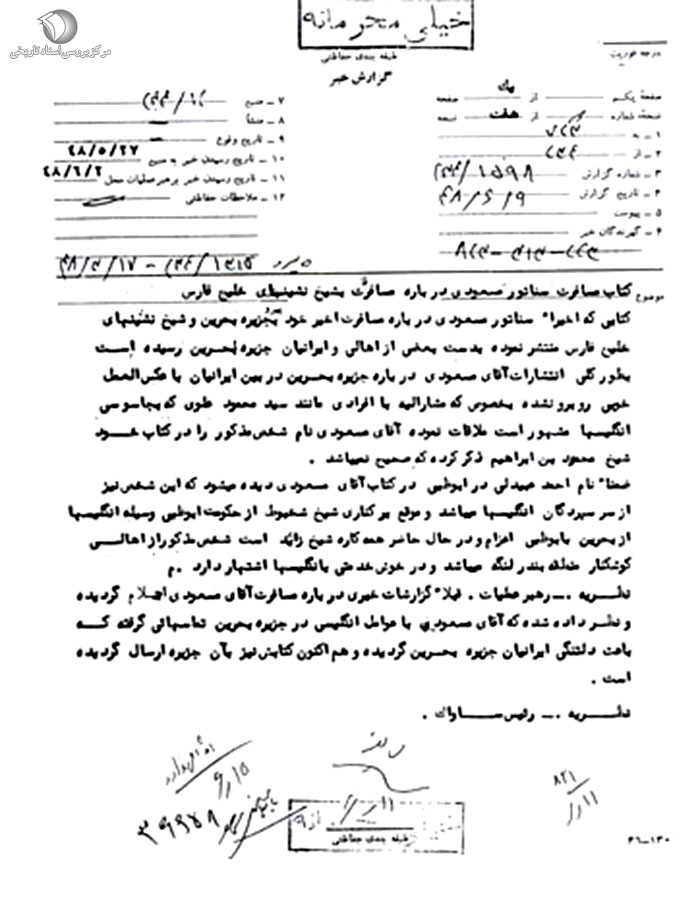 مرکز بررسی اسناد تاریخی
خیلی محرمانه
طبقه بندی حفاظتی
گزارش خبر
درجه فوریت
صفحه یکم از یک صفحه
نسخه شماره از هفت نسخه
۱ ـ به
۲ ـ از
۳ ـ شماره گزارش ۱۵۹۸
۴ ـ تاریخ گزارش ۴۸/۶/۹
۵ ـ پیوست
۶ ـ گیرندگان خبر
۷ ـ منبع
۸ ـ منشأ
۹ ـ تاریخ وقوع
۱۰ ـ تاریخ رسیدن خبر به منبع ۴۸/۵/۲۷
۱۱ ـ تاریخ رسیدن خبر برهبر عملیات محل ۴۸/۶/۲
۱۲ ـ ملاحظات حفاظتی
موضوع کتاب مسافرت سناتور مسعودی در باره مسافرت بشیخ نشینهای خلیج فارس
کتابی که اخیراً سناتور مسعودی در باره مسافرت اخیر خود بجزیره بحرین و شیخ نشینهای
خلیج فارس منتشر نموده بدست بعضی از اهالی و ایرانیان جزیره بحرین رسیده است
بطور کلی انتشارات آقای مسعودی در باره جزیره بحرین در بین ایرانیان با عکس العمل
خوبی روبرو نشده بخصوص که مشارالیه با افرادی مانند سید محمود علوی که بجاسوسی
انگلیسها مشهور است ملاقات نموده آقای مسعودی نام شخص مذکور را در کتاب خود
شیخ محمود بن ابراهیم ذکر کرده که صحیح نمیباشد .
ضمناً نام احمد عبیدلی در ابوظبی در کتاب آقای مسعودی دیده میشود که این شخص نیز
از سر سپردگان انگلیسها میباشد و موقع بر کناری شیخ شخبوط از حکومت ابوظبی وسیله انگلیسها
از بحرین بابوظبی اعزام و در حال حاضر همه کاره شیخ زائد است شخص مذکور از اهالی
کوشکنار منطقه بندر لنگه میباشد و در خوش خدمتی بانگلیسها اشتهار دارد . م
نظریه ـ رهبر عملیات . قبلاً گزارشات خبری در باره مسافرت آقای مسعودی اعلام گردیده
و نظر داده شده که آقای مسعودی با عوامل انگلیسی در جزیره بحرین تماسهائی گرفته که
باعث دلتنگی ایرانیان جزیره بحرین گردیده و هم اکنون کتابش نیز بآن جزیره ارسال گردیده
است .
نظریه ـ رئیس ساواک .
۸۲۱
۱۱
۳۹۹۷۸
طبقه بندی حفاظتی
۴۶-۱۳۰